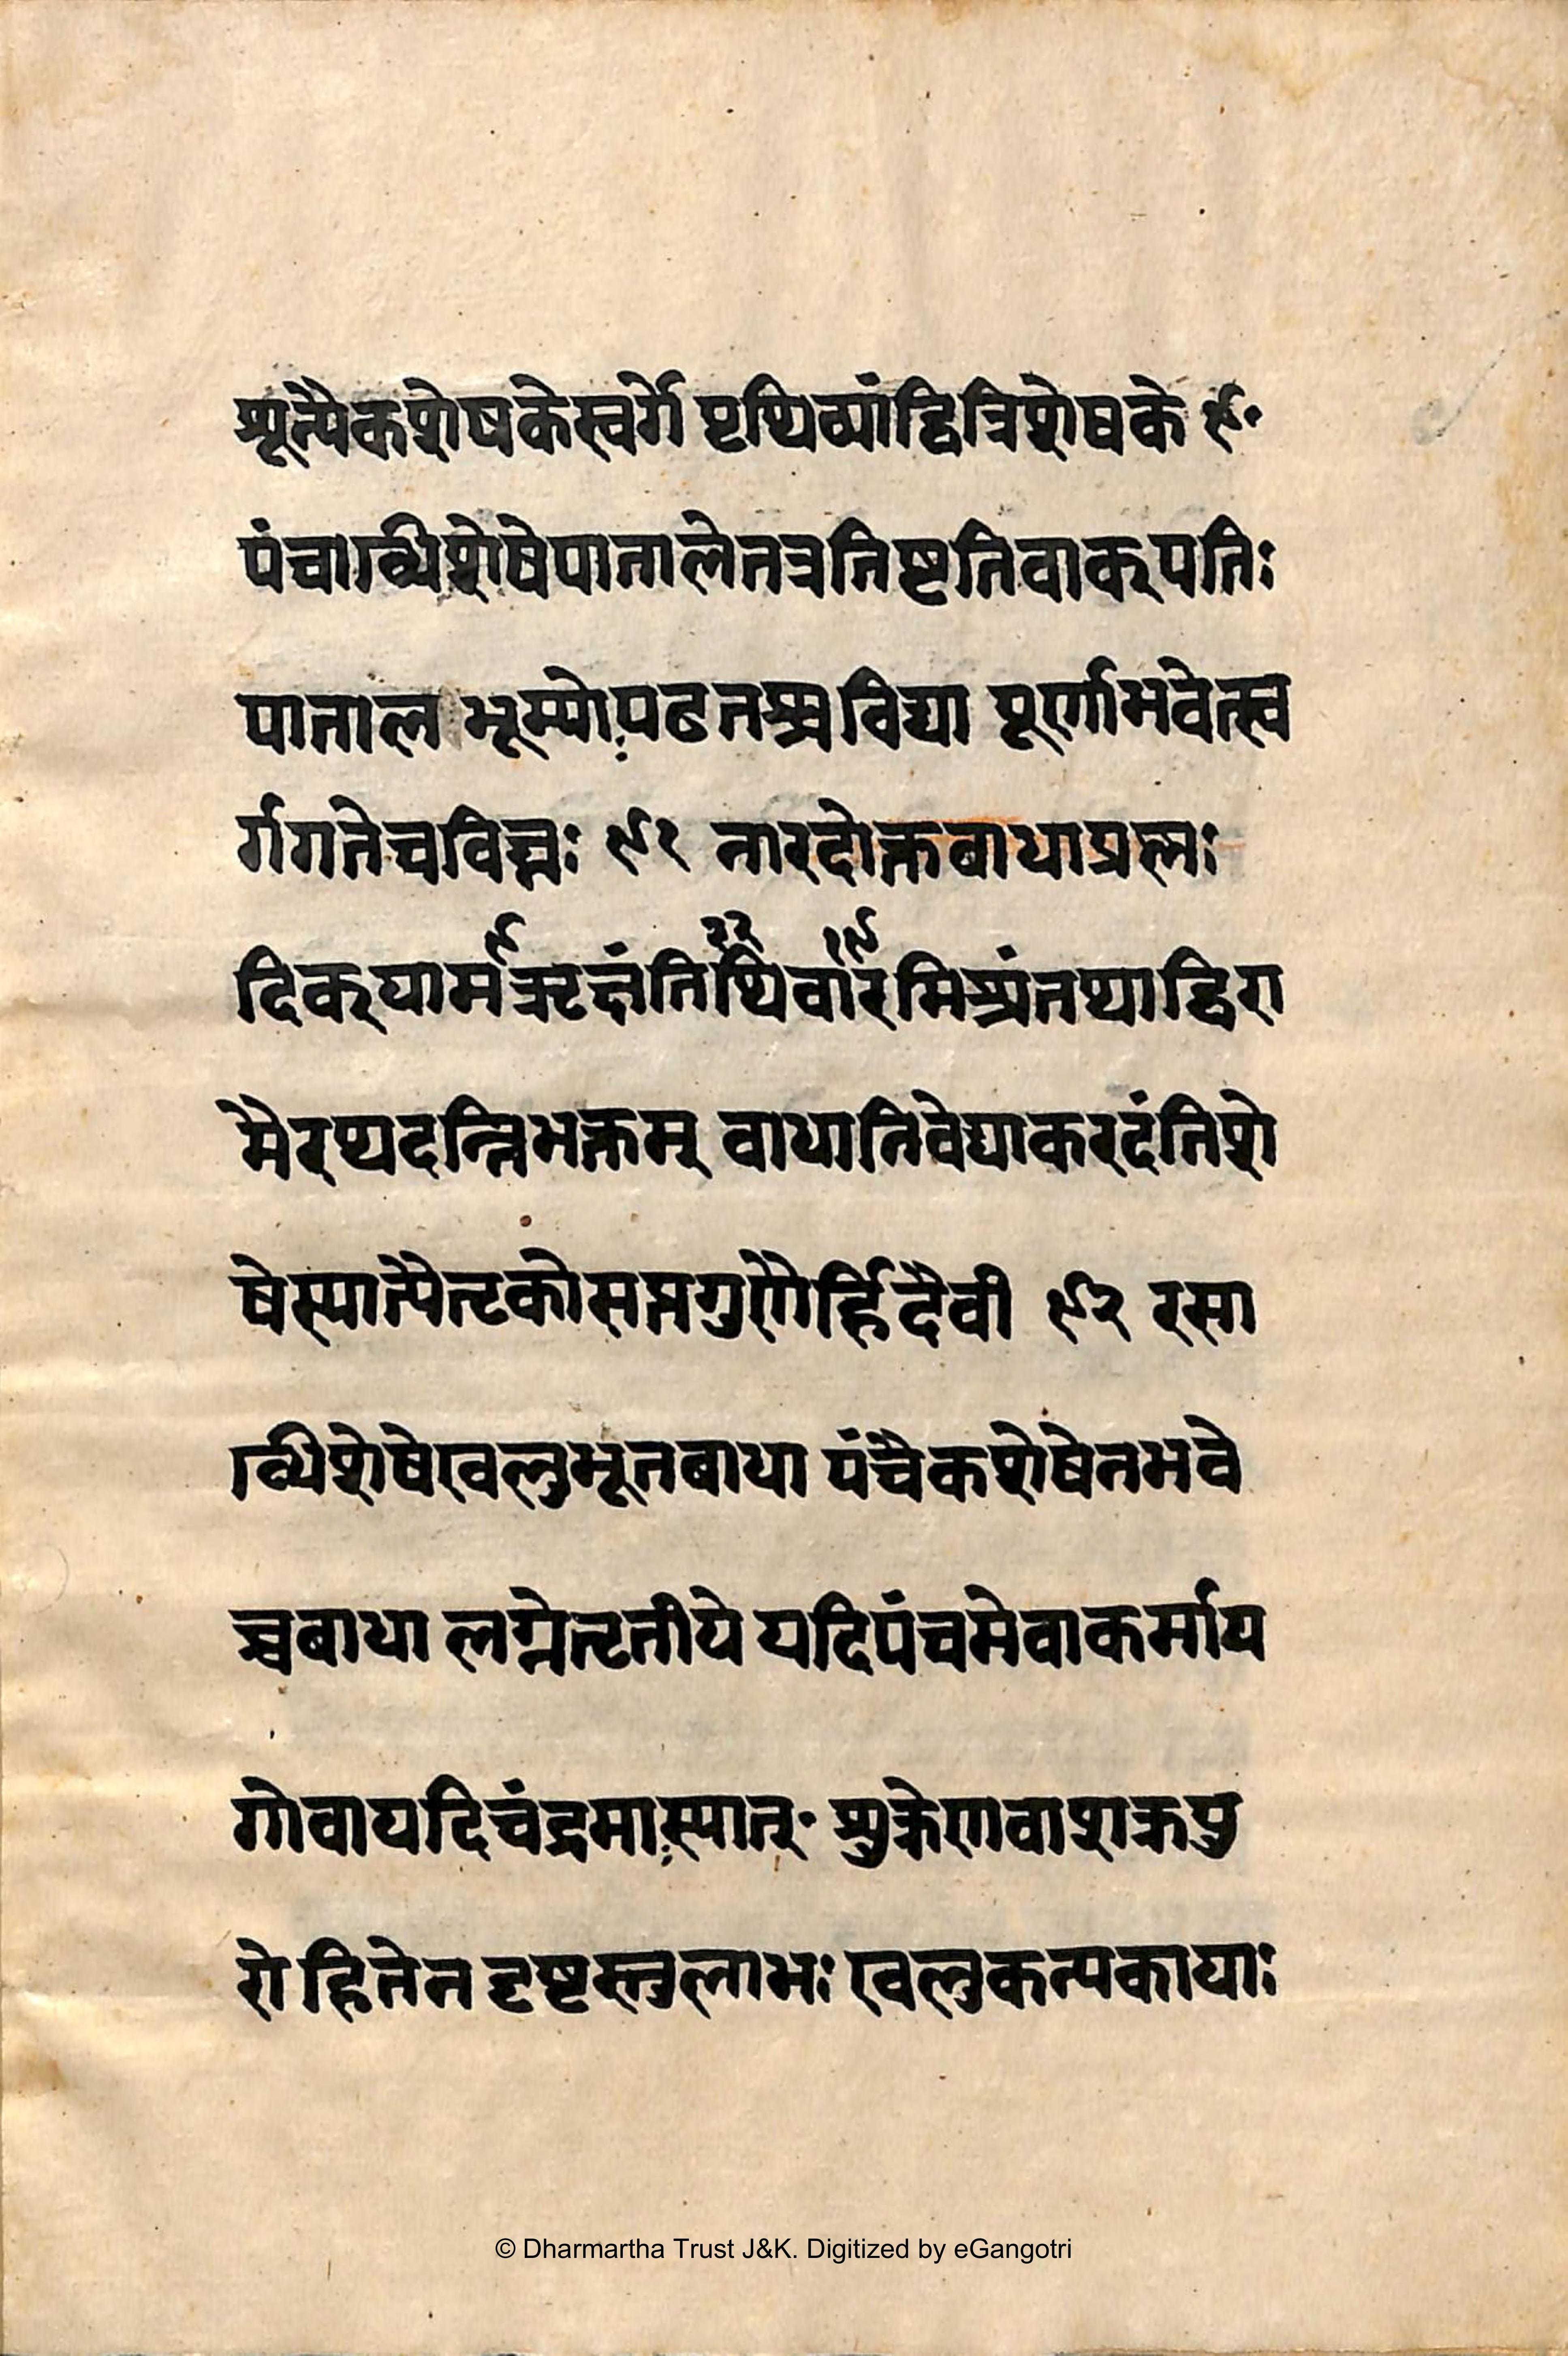 शून्यैकशेषकेस्वर्गे पृथिव्यांद्वित्रिशेषके ९०
पंचाब्धिशेषेपातालेतत्रतिष्टतिवाक्पतिः
पाताल भूम्योःपठनञ्चविद्या पूर्णाभवेत्स्व
र्गगतेचविघ्नः ९१ नारदोक्तबाधाप्रश्नः
९ २२ १९
दिक्यामऋक्षंतिथिवारमिश्रंतथाद्विरा
मैरथदन्तिभक्तम् बाधातिवेद्याकरदंतिशे
षेस्यात्पैत्रकीसप्तगुणैर्हिदैवी ९२ रसा
ब्धिशेषेखलुभूतबाधा पंचैकशेषेनभवे
च्चबाधा लग्नेतृतीये यदिपंचमेवाकर्माय
गोवायदिचंद्रमाःस्यात्॰ शुक्रेणवाशक्रपु
रोहितेन दृष्टस्तुलाभः खलुकन्यकायाः
© Dharmartha Trust J&K. Digitized by eGangotri